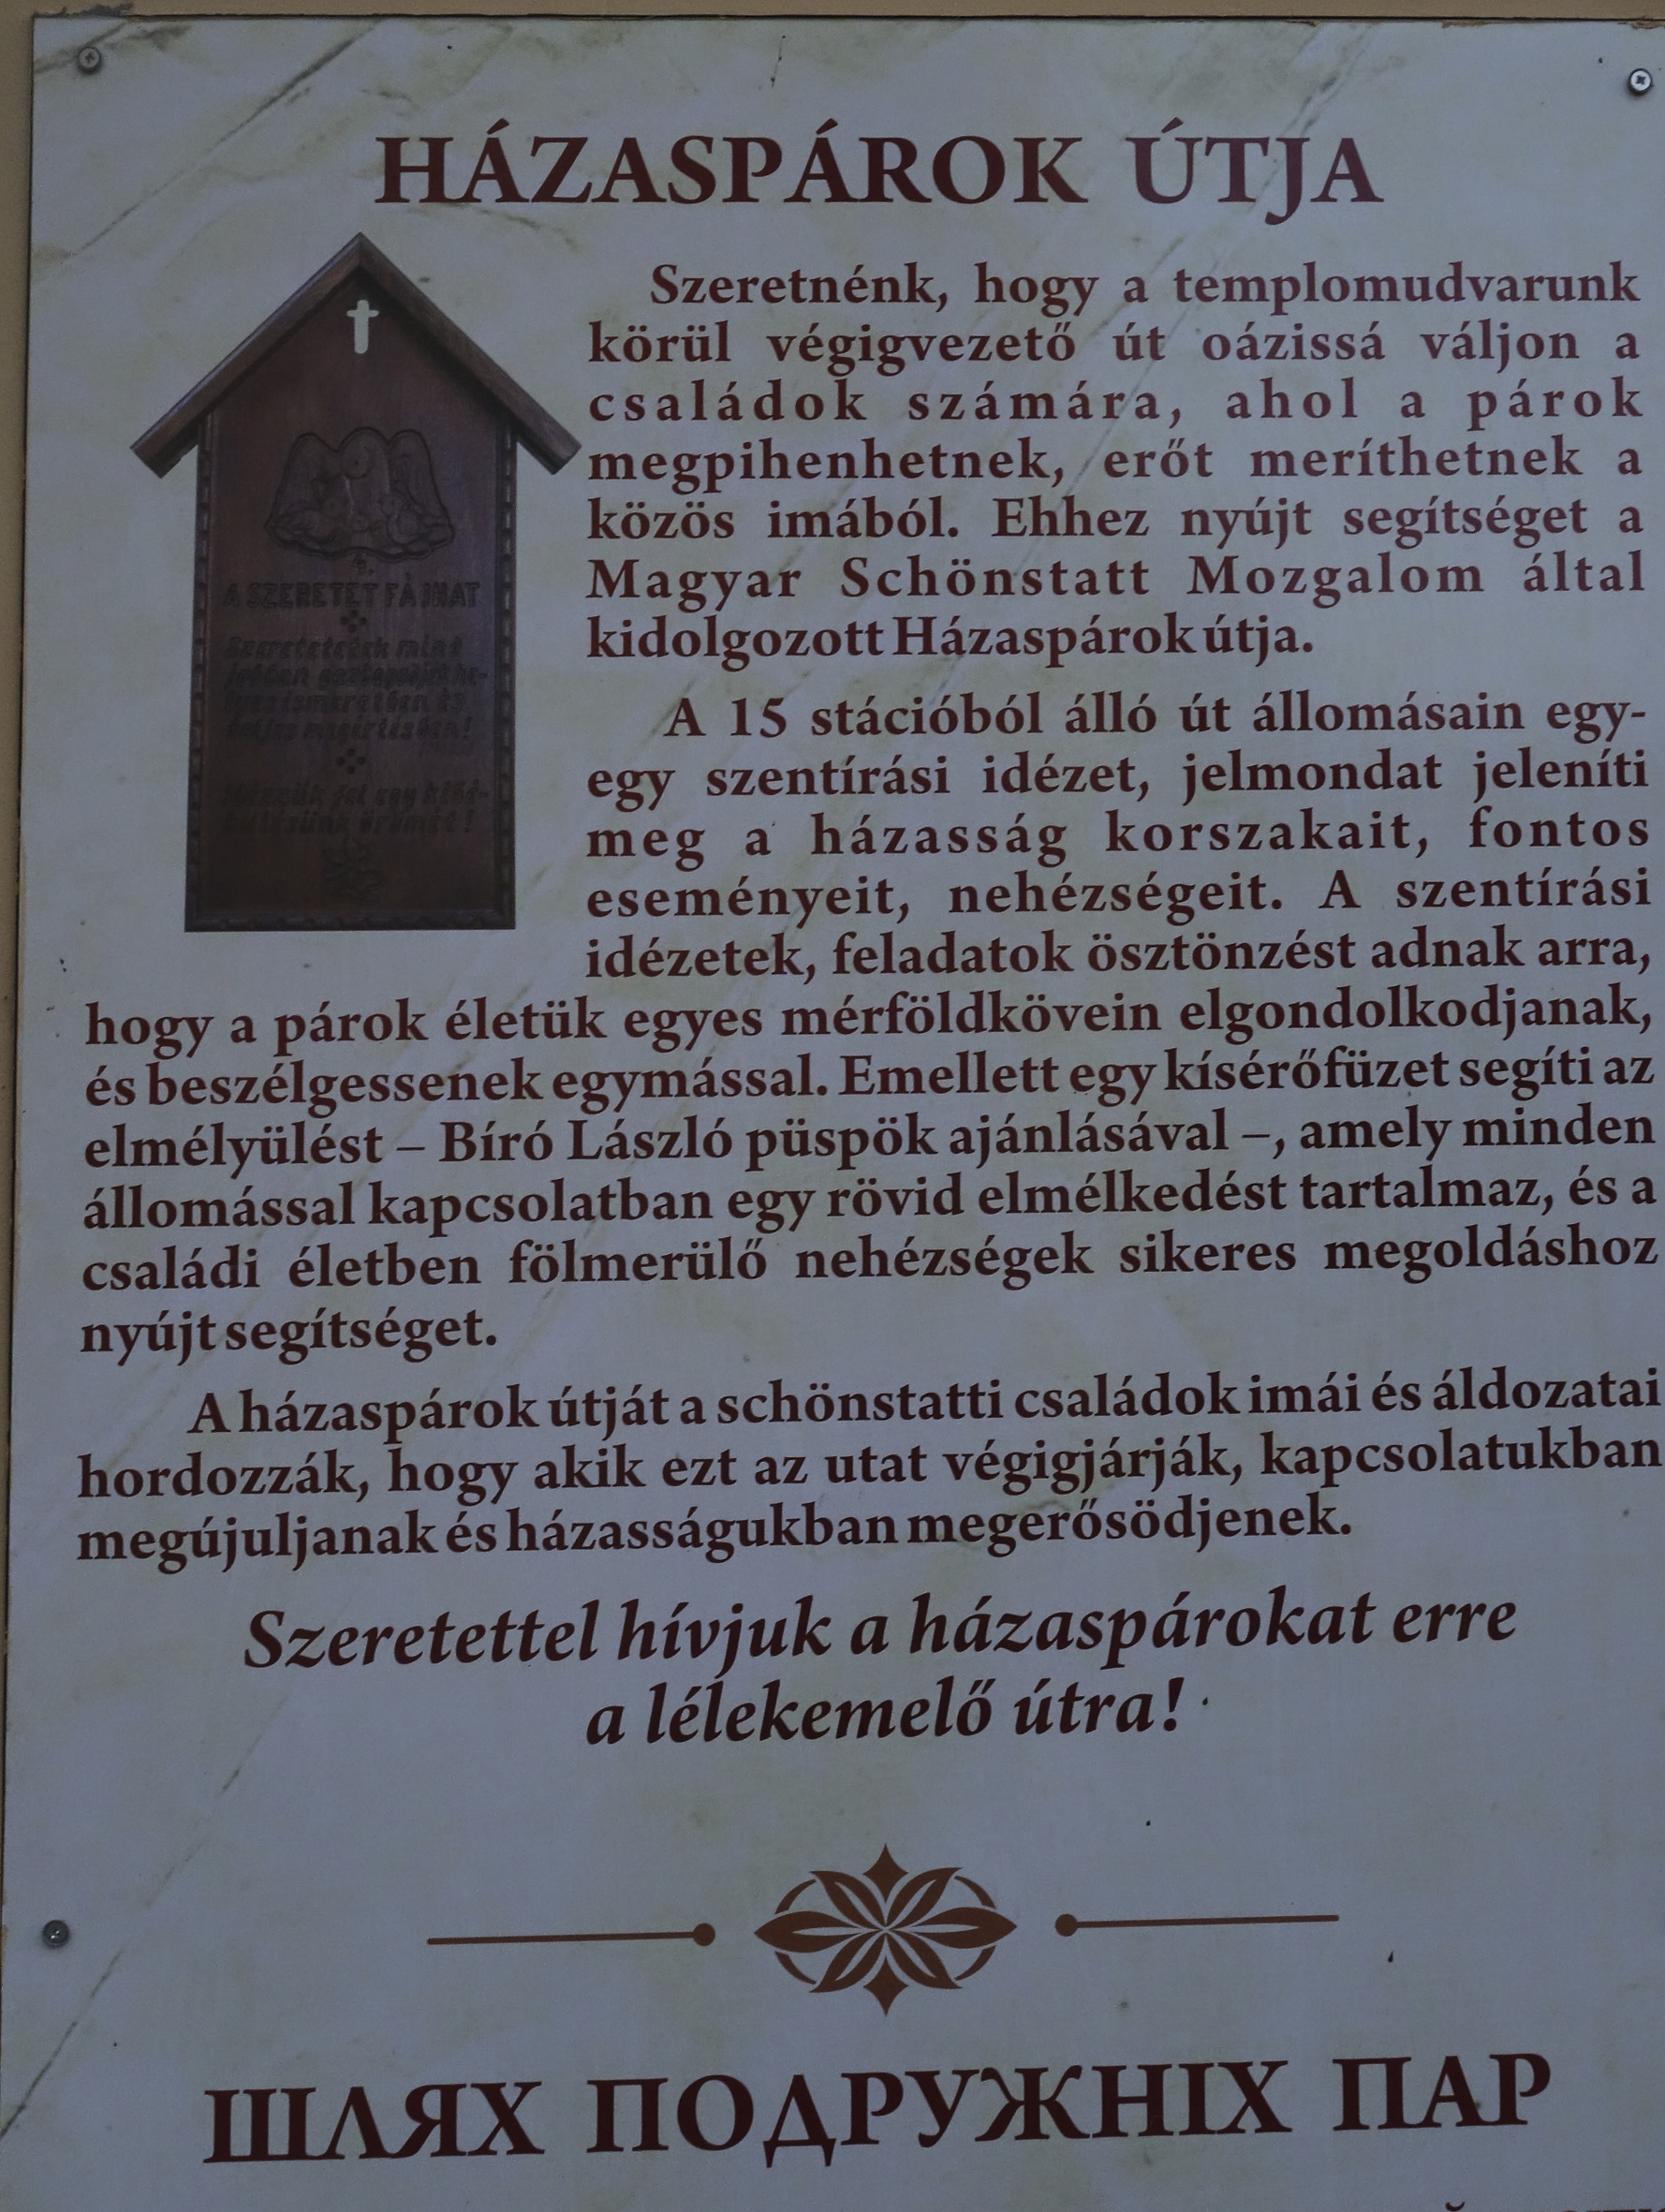 HÁZASPÁROK ÚTJA
Szeretnénk, hogy a templomudvarunk
körül végigvezető út oázissá váljon a
családok számára, ahol a párok
megpihenhetnek, erőt meríthetnek a
közös imából. Ehhez nyújt segítséget a
Magyar Schönstatt Mozgalom által
kidolgozott Házaspárok útja.
A 15 stációból álló út állomásain egy-
egy szentírási idézet, jelmondat jeleníti
meg a házasság korszakait, fontos
eseményeit, nehézségeit. A szentírási
idézetek, feladatok ösztönzést adnak arra,
hogy a párok életük egyes mérföldkövein elgondolkodjanak,
és beszélgessenek egymással. Emellett egy kísérőfüzet segíti az
elmélyülést – Bíró László püspök ajánlásával –, amely minden
állomással kapcsolatban egy rövid elmélkedést tartalmaz, és a
családi életben fölmerülő nehézségek sikeres megoldáshoz
nyújt segítséget.
A házaspárok útját a schönstatti családok imái és áldozatai
hordozzák, hogy akik ezt az utat végigjárják, kapcsolatukban
megújuljanak és házasságukban megerősödjenek.
Szeretettel hívjuk a házaspárokat erre
a lélekemelő útra!
A SZERETET FÁJHAT
Szeretetetek mint
ШЛЯХ ПОДРУЖНІХ ПАР